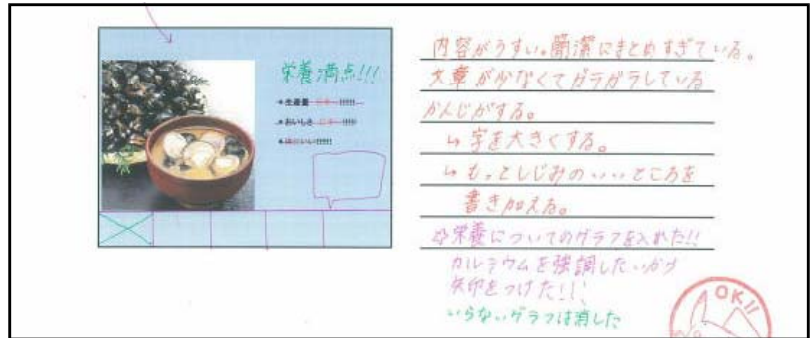 栄養満点!!!
生産量
おいしさ
内容がうすい。簡潔にまとめすぎている。
文章が少なくてガラガラしている
かんじがする。
↳ 字を大きくする。
↳ もっとしじみのいいところを
書き加える。
⇨栄養についてのグラフを入れた!!
カルシウムを強調したいがけ
矢印をつけた!!
いらないグラフは消した
OK!!